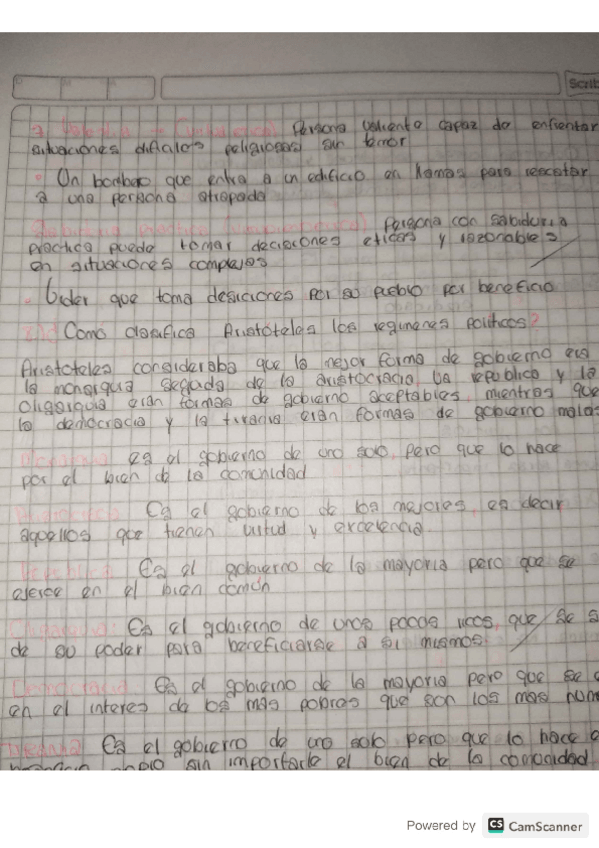 Scrib
Persona valiente capaz do enfrentar
situaciones dificiles peligrosas sin temor
Un bombero que entra a un edificio en llamas para rescatar
a una persona atrapada
Persona con sabiduria
practica puede tomar decisiones eticas y razonables
en situaciones complejas
Lider que toma desiciones por su pueblo por beneficio
Como clasifica Aristóteles los regimenes politicos?
Aristoteles consideraba que la mejor forma de gobierno era
la monarquia seguida de la aristocracia. La republica y la
oligarquia eran formas de gobierno aceptables, mientras que
la democracia y la tirania eran formas de gobierno malas
es el gobierno de uno solo, pero que lo hace
por el bien de la comunidad
Es el gobierno de los mejores, es decir
aquellos que tienen virtud y excelencia
Republica Es el gobierno de la mayoria pero que se
ejerce en el bien común
Oligarquia: Es el gobierno de unos pocos ricos, que se s
de su poder para beneficiarse a si mismos.
Democracia Es el gobierno de la mayoria pero que se
en el interes de los mas pobres que son los mas num
Tirania Es el gobierno de uno solo pero que lo hace
sin importarle el bien de la comunidad
Powered by CS CamScanner